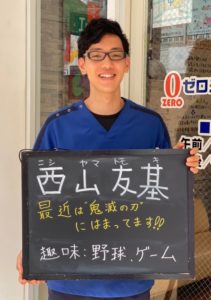 ニシ ヤマ トモ キ
西山友基
最近は"鬼滅の刃"
にはまってます!!
趣味:野球、ゲーム
0ゼロ
ZERO
午前